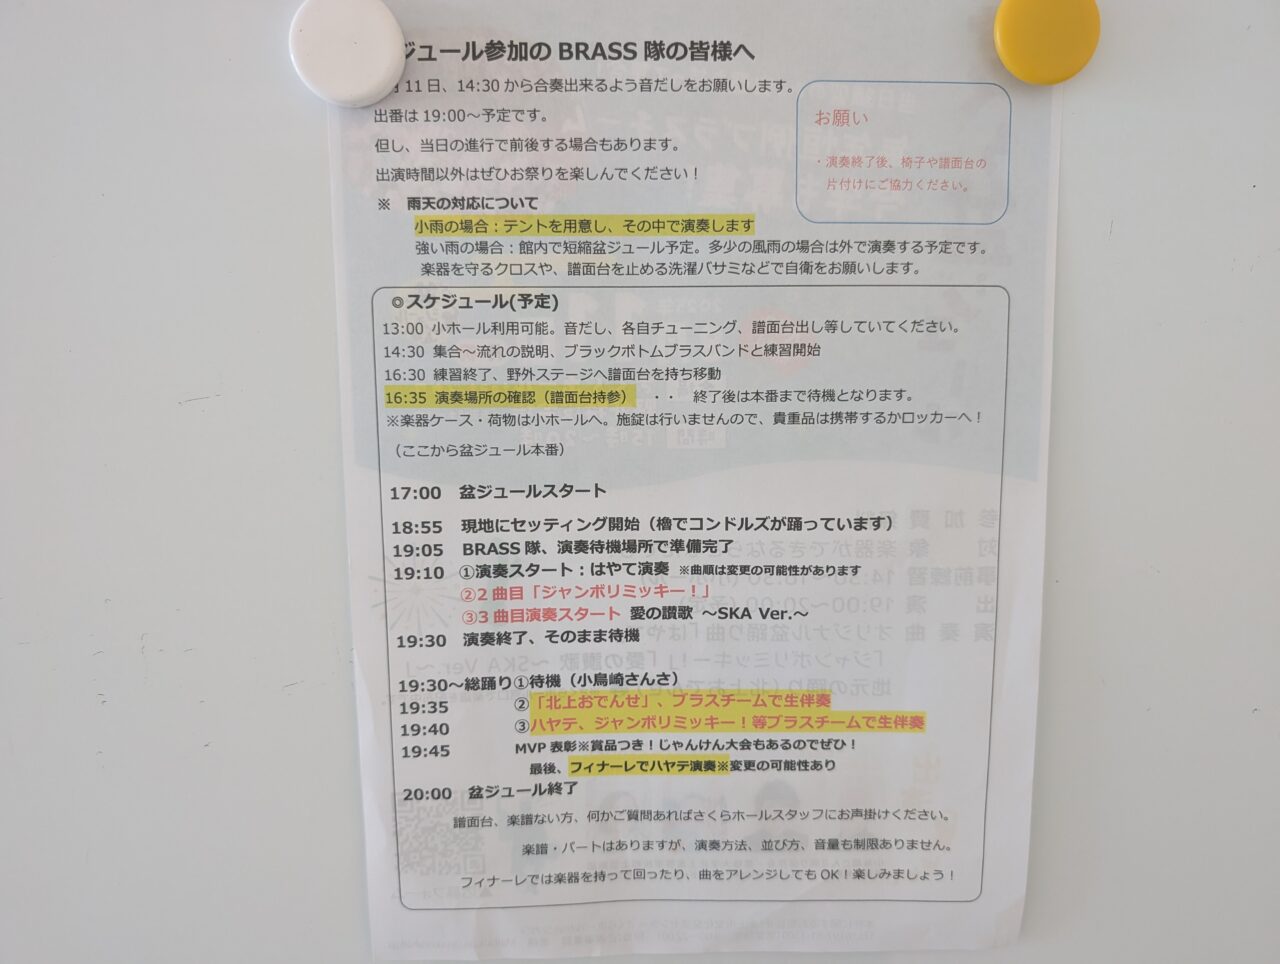 ジュール参加の BRASS 隊の皆様へ
11日、14:30 から合奏出来るよう音だしをお願いします。
出番は 19:00～予定です。
但し、当日の進行で前後する場合もあります。
出演時間以外はぜひお祭りを楽しんでください！
お願い
・演奏終了後、椅子や譜面台の
片付けにご協力ください。
※ 雨天の対応について
小雨の場合：テントを用意し、その中で演奏します
強い雨の場合：館内で短縮盆ジュール予定。多少の風雨の場合は外で演奏する予定です。
楽器を守るクロスや、譜面台を止める洗濯バサミなどで自衛をお願いします。
◎スケジュール(予定)
13:00 小ホール利用可能。音だし、各自チューニング、譜面台出し等していてください。
14:30 集合～流れの説明、ブラックボトムブラスバンドと練習開始
16:30 練習終了、野外ステージへ譜面台を持ち移動
16:35 演奏場所の確認（譜面台持参） ・・ 終了後は本番まで待機となります。
※楽器ケース・荷物は小ホールへ。施錠は行いませんので、貴重品は携帯するかロッカーへ！
（ここから盆ジュール本番）
17:00 盆ジュールスタート
18:55 現地にセッティング開始（櫓でコンドルズが踊っています）
19:05 BRASS 隊、演奏待機場所で準備完了
19:10 ①演奏スタート：はやて演奏 ※曲順は変更の可能性があります
②２曲目「ジャンボリミッキー！」
③３曲目演奏スタート 愛の讃歌 ～SKA Ver.～
19:30 演奏終了、そのまま待機
19:30～総踊り①待機（小鳥崎さんさ）
19:35 ②「北上おでんせ」、ブラスチームで生伴奏
19:40 ③ハヤテ、ジャンボリミッキー！等ブラスチームで生伴奏
19:45 MVP 表彰※賞品つき！じゃんけん大会もあるのでぜひ！
最後、フィナーレでハヤテ演奏※変更の可能性あり
20:00 盆ジュール終了
譜面台、楽譜ない方、何かご質問あればさくらホールスタッフにお声掛けください。
楽譜・パートはありますが、演奏方法、並び方、音量も制限ありません。
フィナーレでは楽器を持って回ったり、曲をアレンジしてもOK！楽しみましょう！